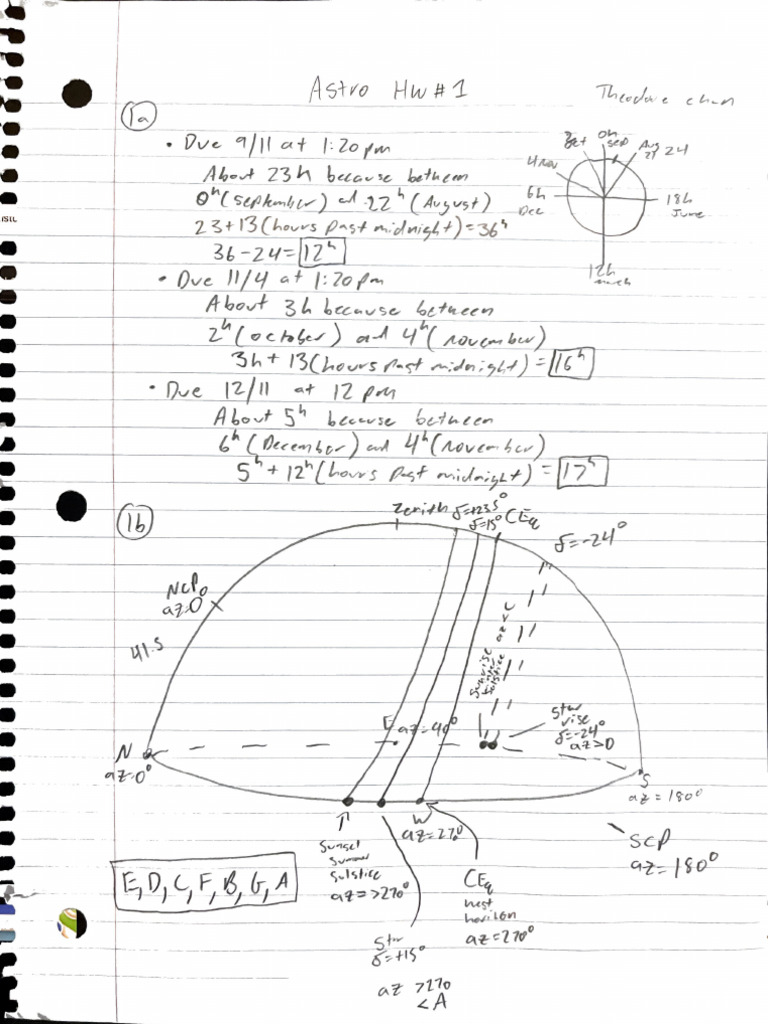 Astro HW # 1
Theodore chan
1a
• Due 9/11 at 1:20 pm
About 23h because between
0h (september) and 22h (August)
23 + 13 (hours past midnight) = 36h
36 - 24 = 12h
• Due 11/4 at 1:20 pm
About 3h because between
2h (october) and 4h (november)
3h + 13 (hours past midnight) = 16h
• Due 12/11 at 12 pm
About 5h because between
6h (December) and 4h (november)
5h + 12h (hours past midnight) = 17h
0h
sep
Aug
24
4 nov
6h
Dec
18h
June
12h
march
1b
Zenith
δ=+23.5°
δ=15°
CEq
δ=-24°
NCP
az=0
41.5
Sunrise
winter
solstice
Star
rise
δ=-24°
az>0
E
N
az=0°
S
az=180°
SCP
az=180°
W
az=270°
Sunset
summer
solstice
az=>270°
CEq
west
horizon
az=270°
Star
δ=+15°
az >270
<A
E, D, C, F, B, G, A